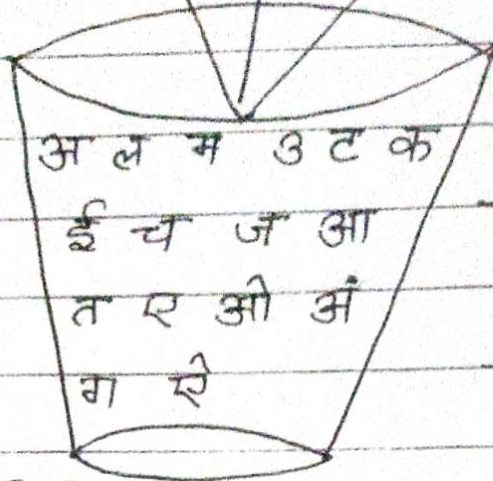 अ ल म उ ट क
ई च ज आ
त ए ओ अं
ग ऐ